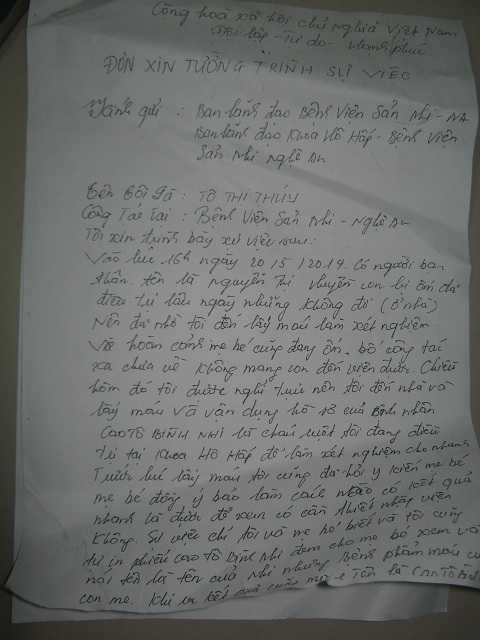 Cộng hoà xã hội chủ nghĩa Việt Nam
Độc lập - Tự do - Hạnh phúc
ĐƠN XIN TƯỜNG TRÌNH SỰ VIỆC
Kính gửi : Ban lãnh đạo Bệnh Viện Sản Nhi - NA
Ban lãnh đạo Khoa Hô Hấp - Bệnh Viện
Sản Nhi Nghệ An
Tên tôi là : TÔ THỊ THÚY
Công tác tại : Bệnh Viện Sản Nhi - Nghệ An
Tôi xin trình bày sự việc sau:
Vào lúc 16h ngày 20/5/2014. Có người bạn
thân tên là Nguyễn Thị Huyền con bị ốm đã
điều trị lâu ngày nhưng không đỡ (ở nhà)
Nên đã nhờ tôi đến lấy máu làm xét nghiệm
Vì hoàn cảnh mẹ bé cũng đang ốm, bố công tác
xa chưa về không mang con đến viện được. Chiều
hôm đó tôi được nghỉ trực nên tôi đến nhà và
lấy máu và vận dụng hồ sơ của Bệnh nhân
CAO TÔ BÌNH NHI là cháu ruột tôi đang điều
trị tại Khoa Hô Hấp để làm xét nghiệm cho nhanh
Trước lúc lấy máu tôi cũng đã hỏi ý kiến mẹ bé
mẹ bé đồng ý bảo làm cách nào có kết quả
nhanh là được để xem có cần thiết nhập viện
không. Sự việc chỉ tôi và mẹ bé biết và tôi cũng
tự in phiếu Cao Tô Bình Nhi đem cho mẹ bé xem và
nói tên là tên của Nhi nhưng bệnh phẩm máu của
con mẹ. Khi in kết quả tên là Cao Tô